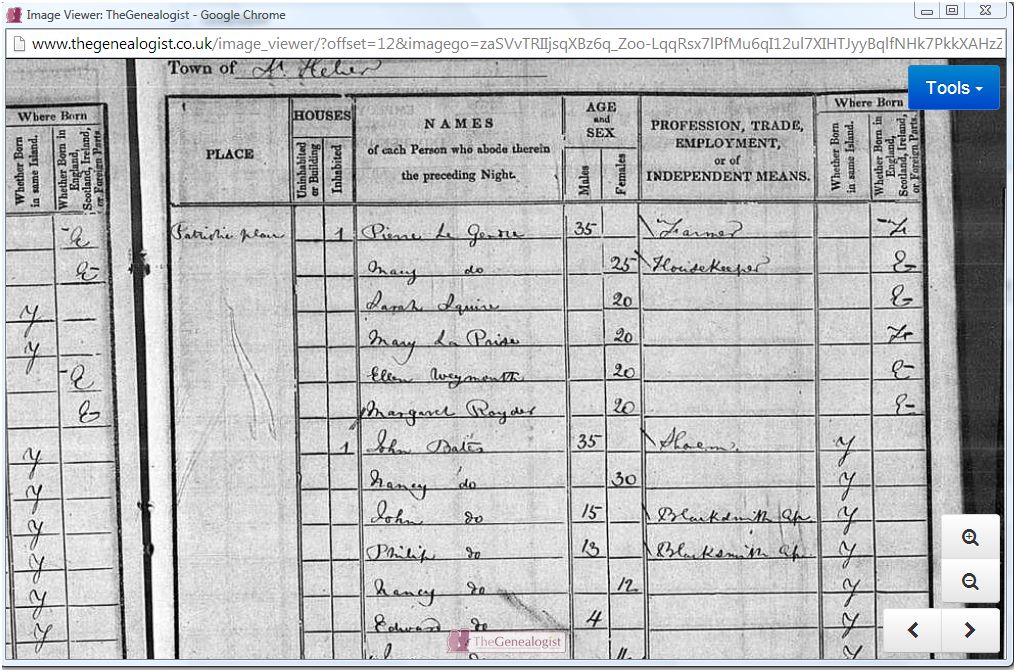 Image Viewer: TheGenealogist - Google Chrome
www.thegenealogist.co.uk/image_viewer/?offset=12&imago=zaSVvTRIIjsqXBz6q_Zoo-LqqRsx7lPfMu6qI12ul7XIHTJyyBqlfNHk7PkkXAHzZ
Town of St. Helier
Tools
Where Born
Whether Born in same Island.
Whether Born in England, Scotland, Ireland, or Foreign Parts.
PLACE
HOUSES
Uninhabited or Building
Inhabited
NAMES
of each Person who abode therein
the preceding Night.
AGE
and
SEX
Males
Females
PROFESSION, TRADE,
EMPLOYMENT,
or of
INDEPENDENT MEANS.
Where Born
Whether Born in same Island.
Whether Born in England, Scotland, Ireland, or Foreign Parts.
E Patriotic place 1 Pierre Le Gendre 35 Farmer F
E Mary do 25 Housekeeper E
Y Sarah Squire 20 E
Y Mary La Prise 20 Fr
E Ellen Weymouth 20 E
E Margaret Royder 20 E
Y 1 John Bates 35 Shoem. Y
Y Nancy do 30 Y
Y John do 15 Blacksmith Ap. Y
Y Philip do 13 Blacksmith Ap. Y
Y Nancy do 12 Y
Y Edward do 4 Y
TheGenealogist